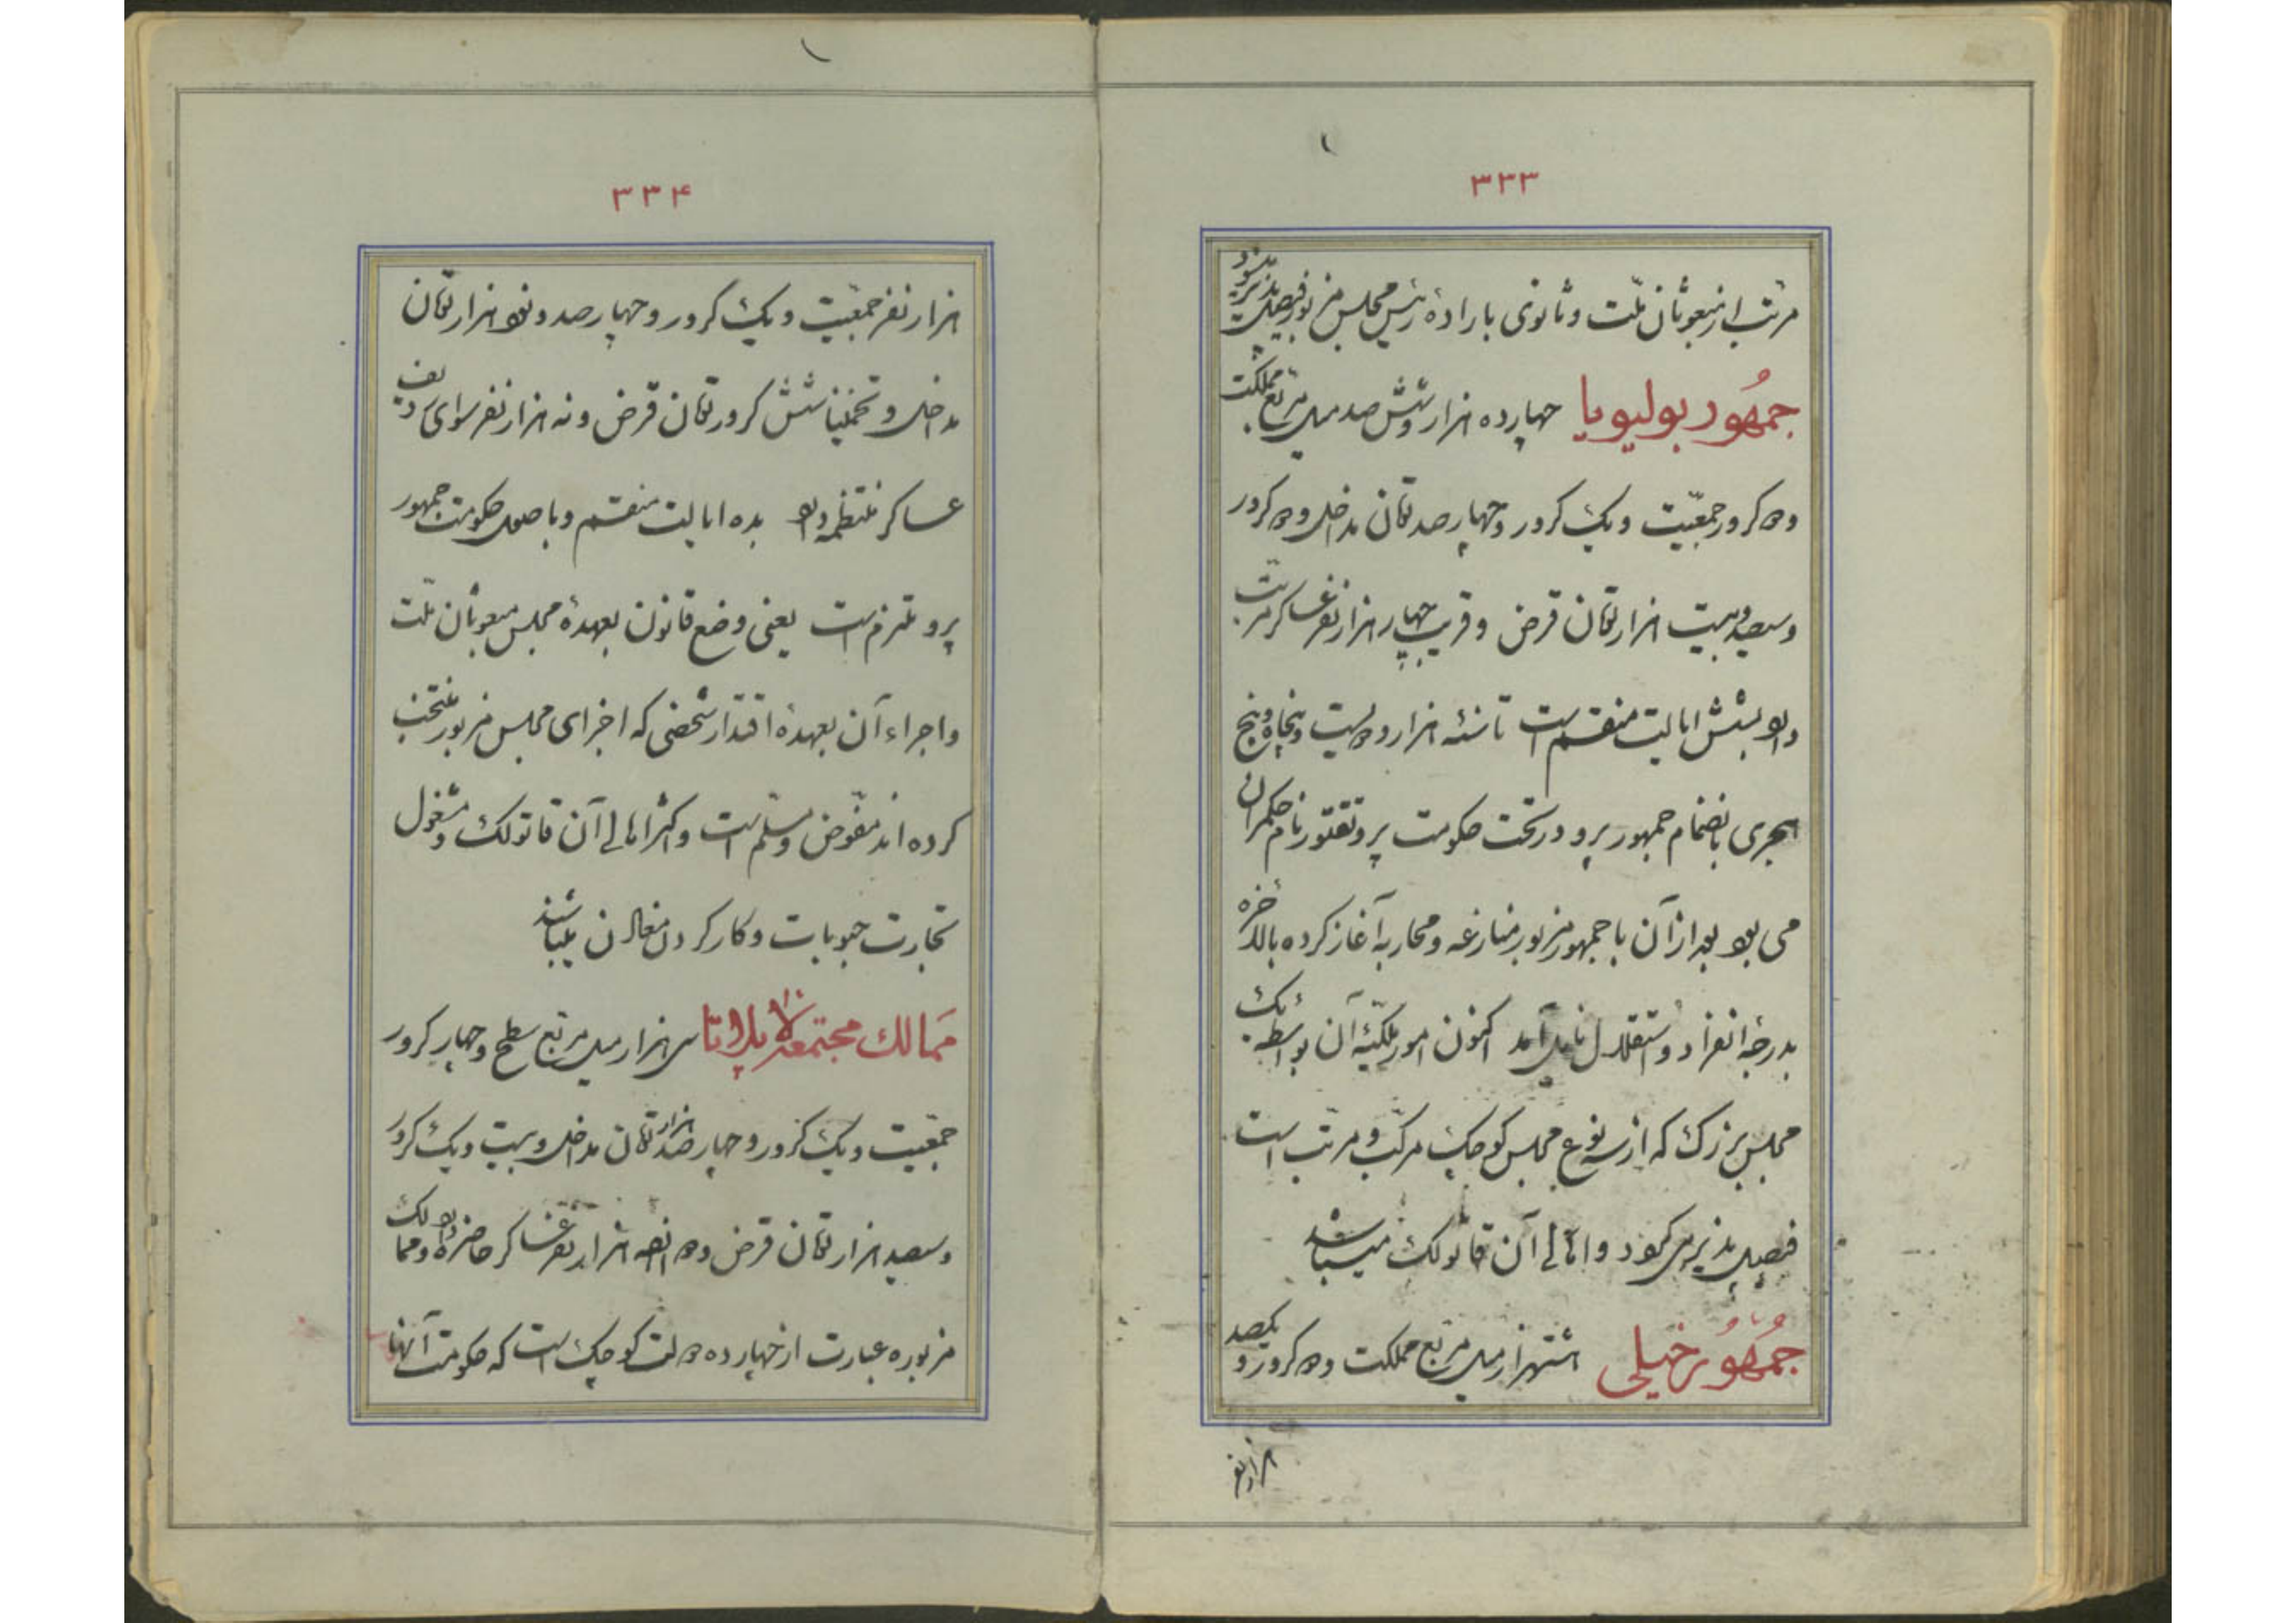 ۳۳۳
مرتب از مبعوثان ملت و ثانوی باراده رئیس مجلس مزبور فیصل پذیر میشود
جمهور بولیویا چهارده هزار و شش صد میل مربع مملکت
و دو کرور جمعیت و یک کرور و چهار صد تومان مداخل و دو کرور
و سیصد و بیست هزار تومان قرض و قریب چهار هزار نفر عساکر مرتب
دارد بشش ایالت منقسم است تا سنه هزار و دویست و پنجاه و پنج
هجری بانضمام جمهور پرو در تحت حکومت پروتقتور نام حکمران
می بود بعد از آن با جمهور مزبور منازعه و محاربه آغاز کرده بالاخره
بدرجه انفراد و استقلال نایل آمد اکنون امور ملکیه آن بواسطه یک
مجلس بزرگ که از سه نوع مجلس کوچک مرکب و مرتب است
فیصل پذیر می گردد و اهالی آن قاتولک میباشد
جمهور خیلی هشتهزار میل مربع مملکت و دو کرور و یکصد
هزار نفر
۳۳۴
هزار نفر جمعیت و یک کرور و چهار صد و نود هزار تومان
مداخل و تخمینا شش کرور تومان قرض و نه هزار نفر سوای ردیف
عساکر منتظمه دارد بده ایالت منقسم و باصول حکومت جمهور
پرو ملتزم است یعنی وضع قانون بعهده مجلس مبعوثان ملت
و اجراء آن بعهده اقتدار شخصی که اجزای مجلس مزبور منتخب
کرده اند مفوض و مسلم است و اکثر اهالی آن قاتولک و مشغول
تجارت حبوبات و کار کردن معادن میباشند
ممالک مجتمعه لاپلاتا سی هزار میل مربع سطح و چهار کرور
جمعیت و یک کرور و چهار صد هزار تومان مداخل و بیست و یک کرور
و سیصد هزار تومان قرض و دوازده هزار نفر عساکر حاضره دارد و ممالک
مزبوره عبارت از چهارده دولت کوچک است که حکومت آنها